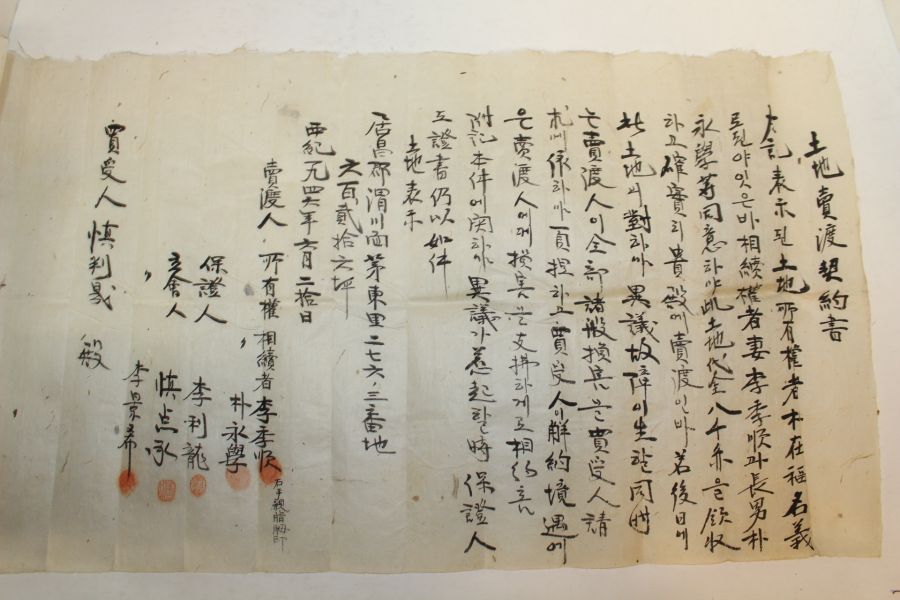 土地賣渡契約書
左記表示된土地所有權者朴在福名義
로되야잇은바相續權者妻李季順과長男朴
永學等同意하야此土地代金八千亦을領収
하고確實히貴殿에賣渡인바若後日에
此土地에對하야異議故障이生할同時
는賣渡人이全部諸般損害을買受人請
求에依하야負担하고買受人이解約境遇에
은賣渡人에게損害을支拂하게로相約흠
附記本件에関하야異議가惹起할時保證人
立證書仍以如件
土地表示
居昌郡渭川面茅東里二七六ノ三番地
六百貳拾六坪
西紀一九四六年六月二拾日
賣渡人 所有權相續者李季順
右手親指拇印
〃 朴永學
保證人 李判龍
立會人 慎点承
〃 李景希
買受人 慎判晟 殿